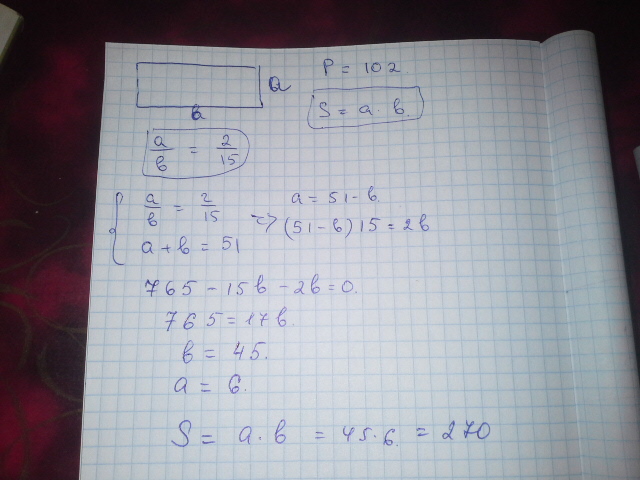 P = 102.
a
b
S = a · b.
a/b = 2/15
a/b = 2/15
a + b = 51
=> a = 51 - b.
(51 - b) 15 = 2b
765 - 15b - 2b = 0.
765 = 17b.
b = 45.
a = 6.
S = a · b = 45 · 6 = 270